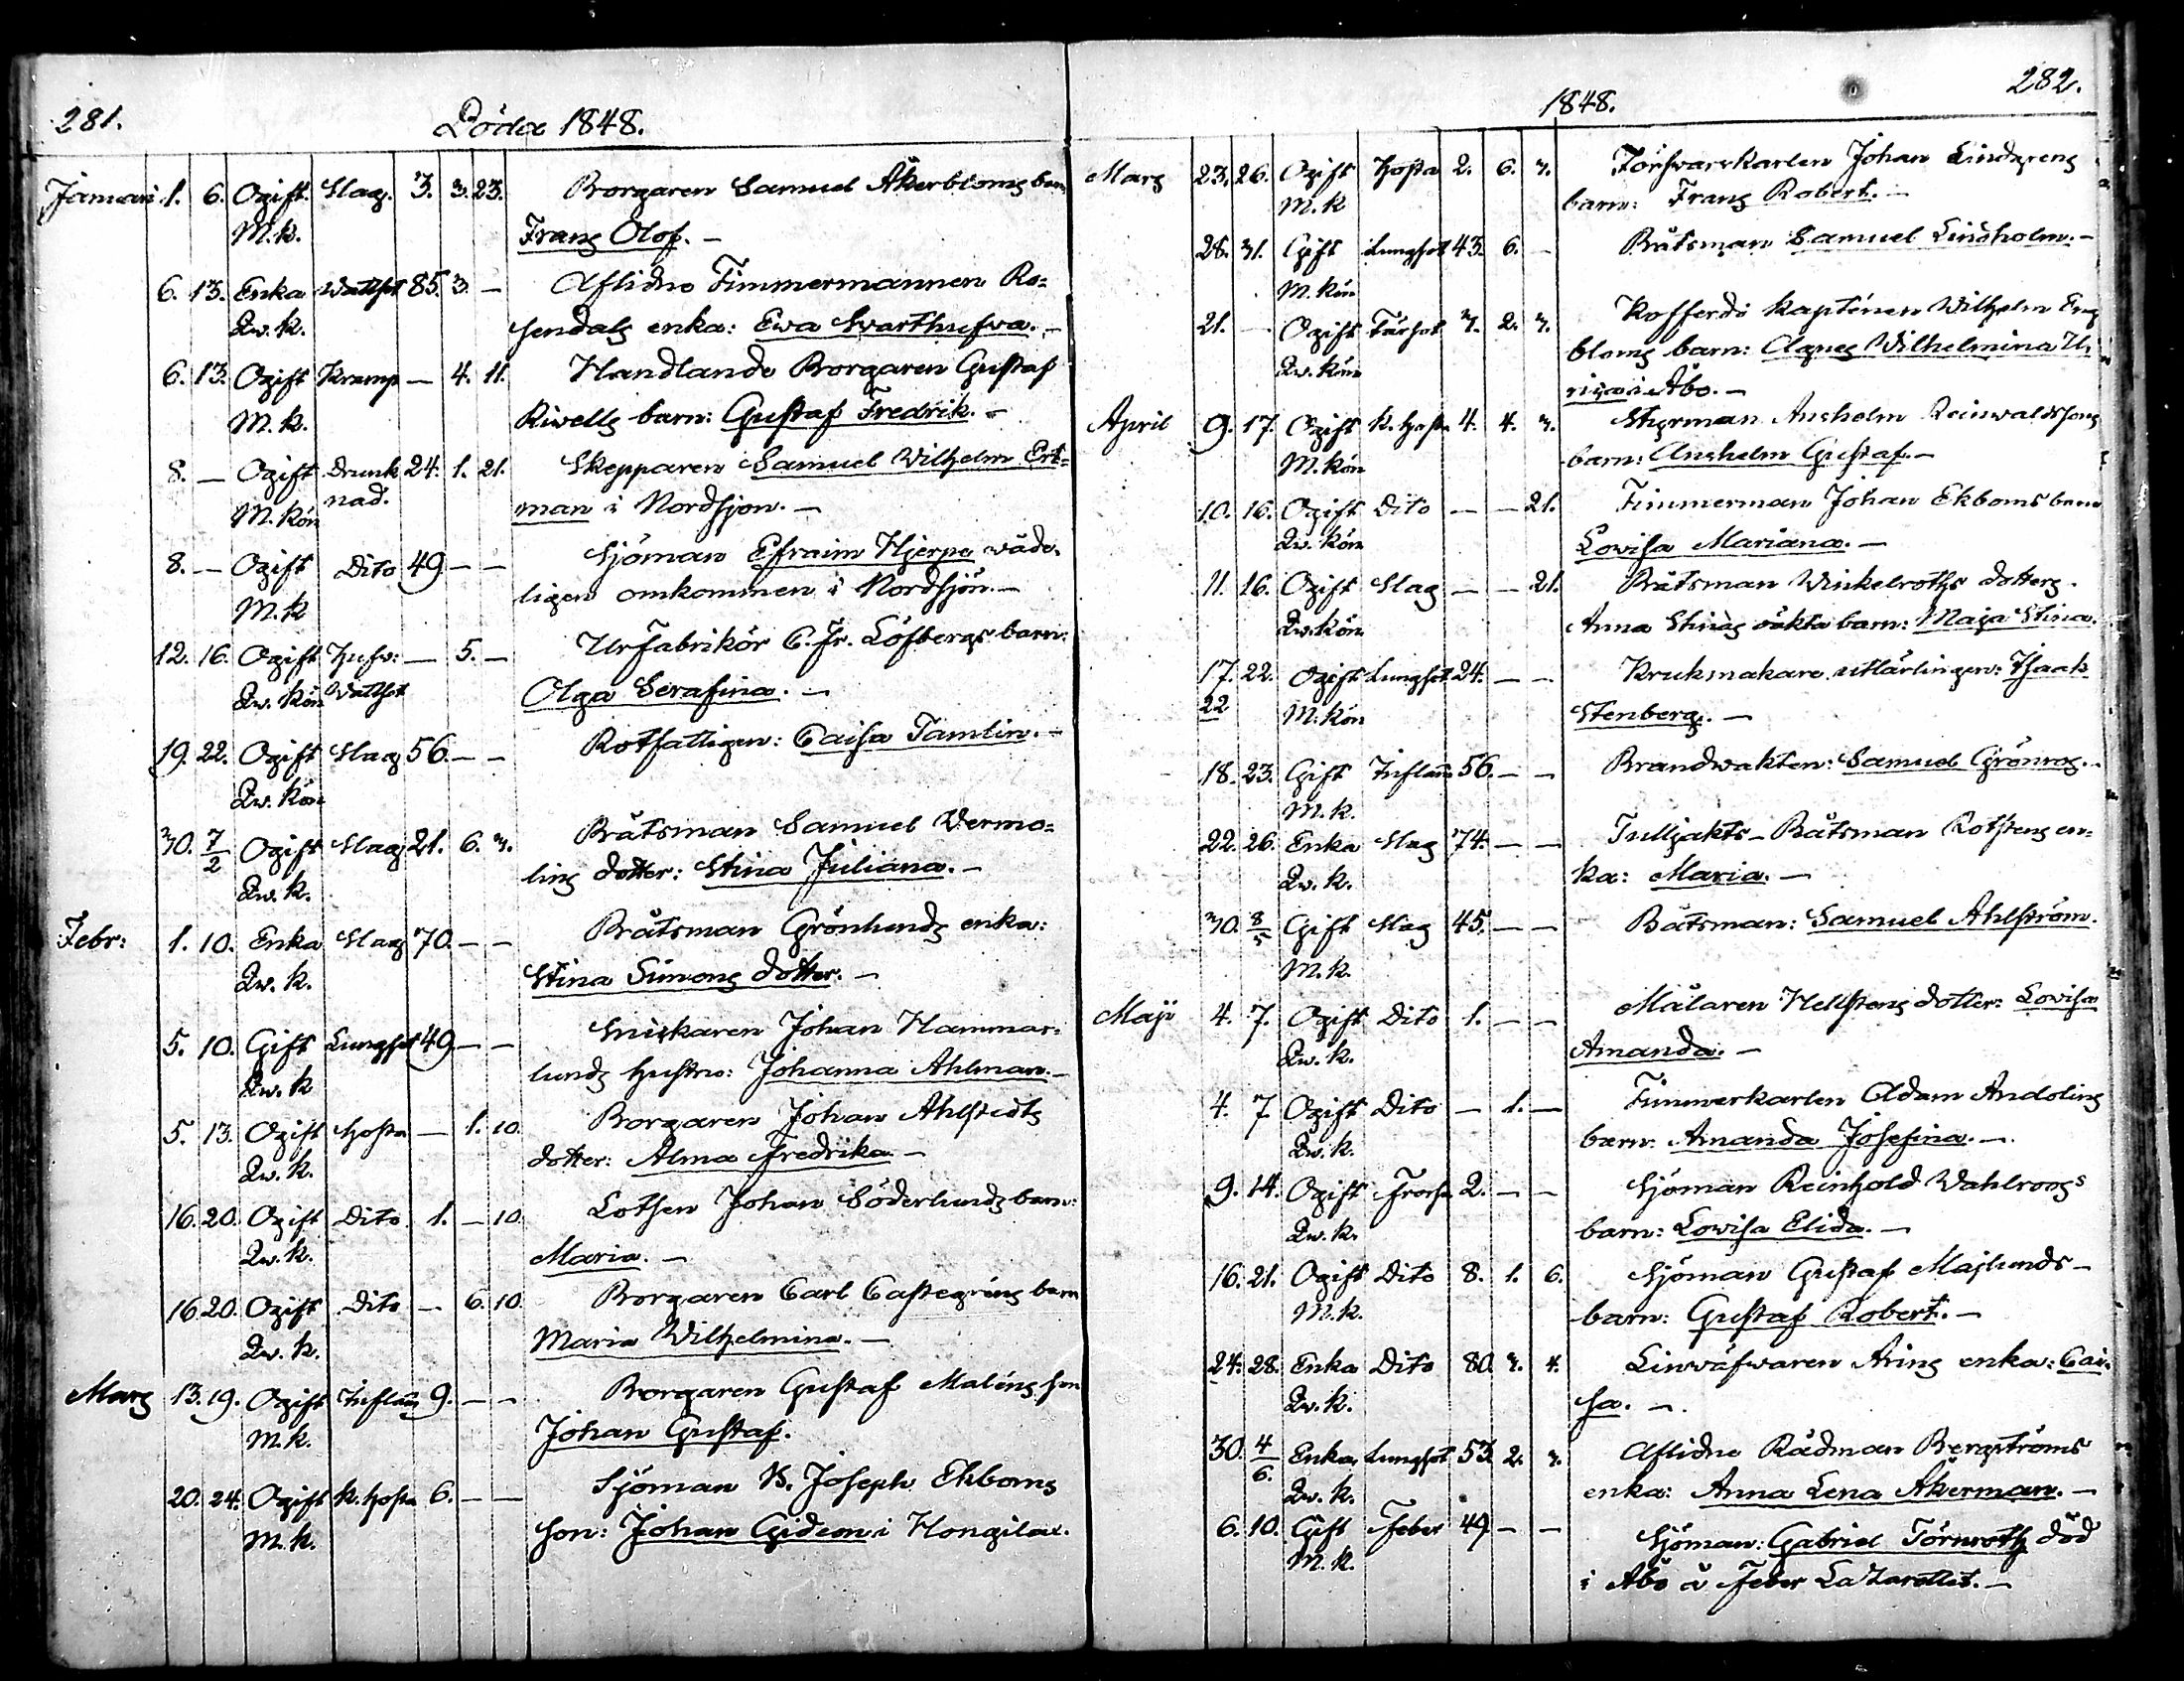 281.
Döda 1848.
Januari 1. 6. Ogift. Slag. 3. 3. 23. Borgaren Samuel Åkerbloms barn
M.k. Frans Olof. —
6. 13. Enka Wattsot 85. 3. — Aflidne Timmermannen Ro=
Qw. k. sendals enka: Ewa Svarthufva. —
6. 13. Ogift Kramp — 4. 11. Handlande Borgaren Gustaf
M. k. Rivells barn: Gustaf Fredrik. —
8. — Ogift Drunk 24. 1. 21. Skepparen Samuel Wilhelm Ert=
M. kön nad. man i Nordsjön. —
8. — Ogift Dito 49 — — Sjöman Efraim Hjerpe våde.
M. k ligen omkommen i Nordsjön. —
12. 16. Ogift Hufv: — 5. — Urfabrikör C. Fr. Löfbergs barn:
Qw. kön Wattsot Olga Serafina. —
19. 22. Ogift Slag 56. — — Rotfattigen: Caisa Tamlin. —
Qw. kön
30. 7/2 Ogift Slag 21. 6. 3. Båtsman Samuel Vermo=
Qw. k. lins dotter: Stina Juliana. —
Febr: 1. 10. Enka Slag 70. — — Båtsman Grönlunds enka:
Qw. k. Stina Simons dotter. —
5. 10. Gift Lungsot 49 — — Snickaren Johan Hammar=
Qw. k lunds hustru: Johanna Ahlman. —
5. 13. Ogift Hosta — 1. 10. Borgaren Johan Ahlstedts
Qw. k. dotter: Alma Fredrika —
16. 20. Ogift Dito 1. — 10. Lotsen Johan Söderlunds barn:
Qw. k. Maria. —
16 20. Ogift Dito — 6. 10. Borgaren Carl Castegréns barn
Qw. k. Maria Wilhelmina. —
Mars 13. 19. Ogift Inflam 9. — — Borgaren Gustaf Maléns son
M. k. Johan Gustaf.
20. 24. Ogift K. hosta 6. — — Sjöman K. Joseph Ekboms
M. k. son: Johan Gideon i Hongilax.
282.
1848.
Mars 23. 26. Ogift Hosta 2. 6. 3. Försvarskarlen Johan Lindgrens
M. k barn: Frans Robert. —
28. 31. Gift Lungsot 43. 6. — Båtsman Samuel Lindholm. —
M. kön
21. — Ogift Tärsot 3. 2. 3. Kofferdi Kapténen Wilhelm Eng
Qw. kön bloms barn: Agnes Wilhelmina
i Åbo. —
April 9. 17. Ogift K. hosta 4. 4. 3. Styrman Anshelm Reinwaldssons
M. kön barn: Anshelm Gustaf. —
10. 16. Ogift Dito — — 21. Timmerman Johan Ekboms barn
Qw. kön Lovisa Mariana. —
11. 16. Ogift Slag — — 21. Båtsman Winkelroths dotters.
Qw. kön Anna Stinas oäkta barn: Maja Stina.
17. 22. Ogift Lungsot 24. — — Krukmakare utlärlingen: Isaak
22 M. kön Stenberg. —
18. 23. Gift Inflam 56. — — Brandwakten: Samuel Grönros. —
M. k.
22. 26. Enka Slag 74. — — Tulljakts-Båtsman Rotstens en=
Qw. k. ka: Maria. —
30. 8/5 Gift Slag 45. — — Båtsman: Samuel Ahlström.
M. k.
Maji 4. 7. Ogift Dito 1. — — Målaren Hellstens dotter: Lovisa
Qw. k. Amanda. —
4. 7 Ogift Dito — 1. — Timmerkarlen Adam Andolins
Qw. k. barn: Amanda Josefina. —
9. 14. Ogift Frossa 2. — — Sjöman Reinhold Wahlroos
Qw. k. barn: Lovisa Elida. —
16. 21. Ogift Dito 8. 1. 6. Sjöman Gustaf Majlunds —
M. k. barn: Gustaf Robert. —
24. 28. Enka Dito 80. 3. 4. Linwäfvaren Arins enka: Cai.
Qw. k. sa. —
30. 4/6. Enka Lungsot 53 2. 3. Aflidne Rådman Bergströms
Qw. k. enka: Anna Lena Åkerman. —
6. 10. Gift Feber 49 — — Sjöman: Gabriel Törnroth död
M. k. i Åbo å Feber Lazarettet. —